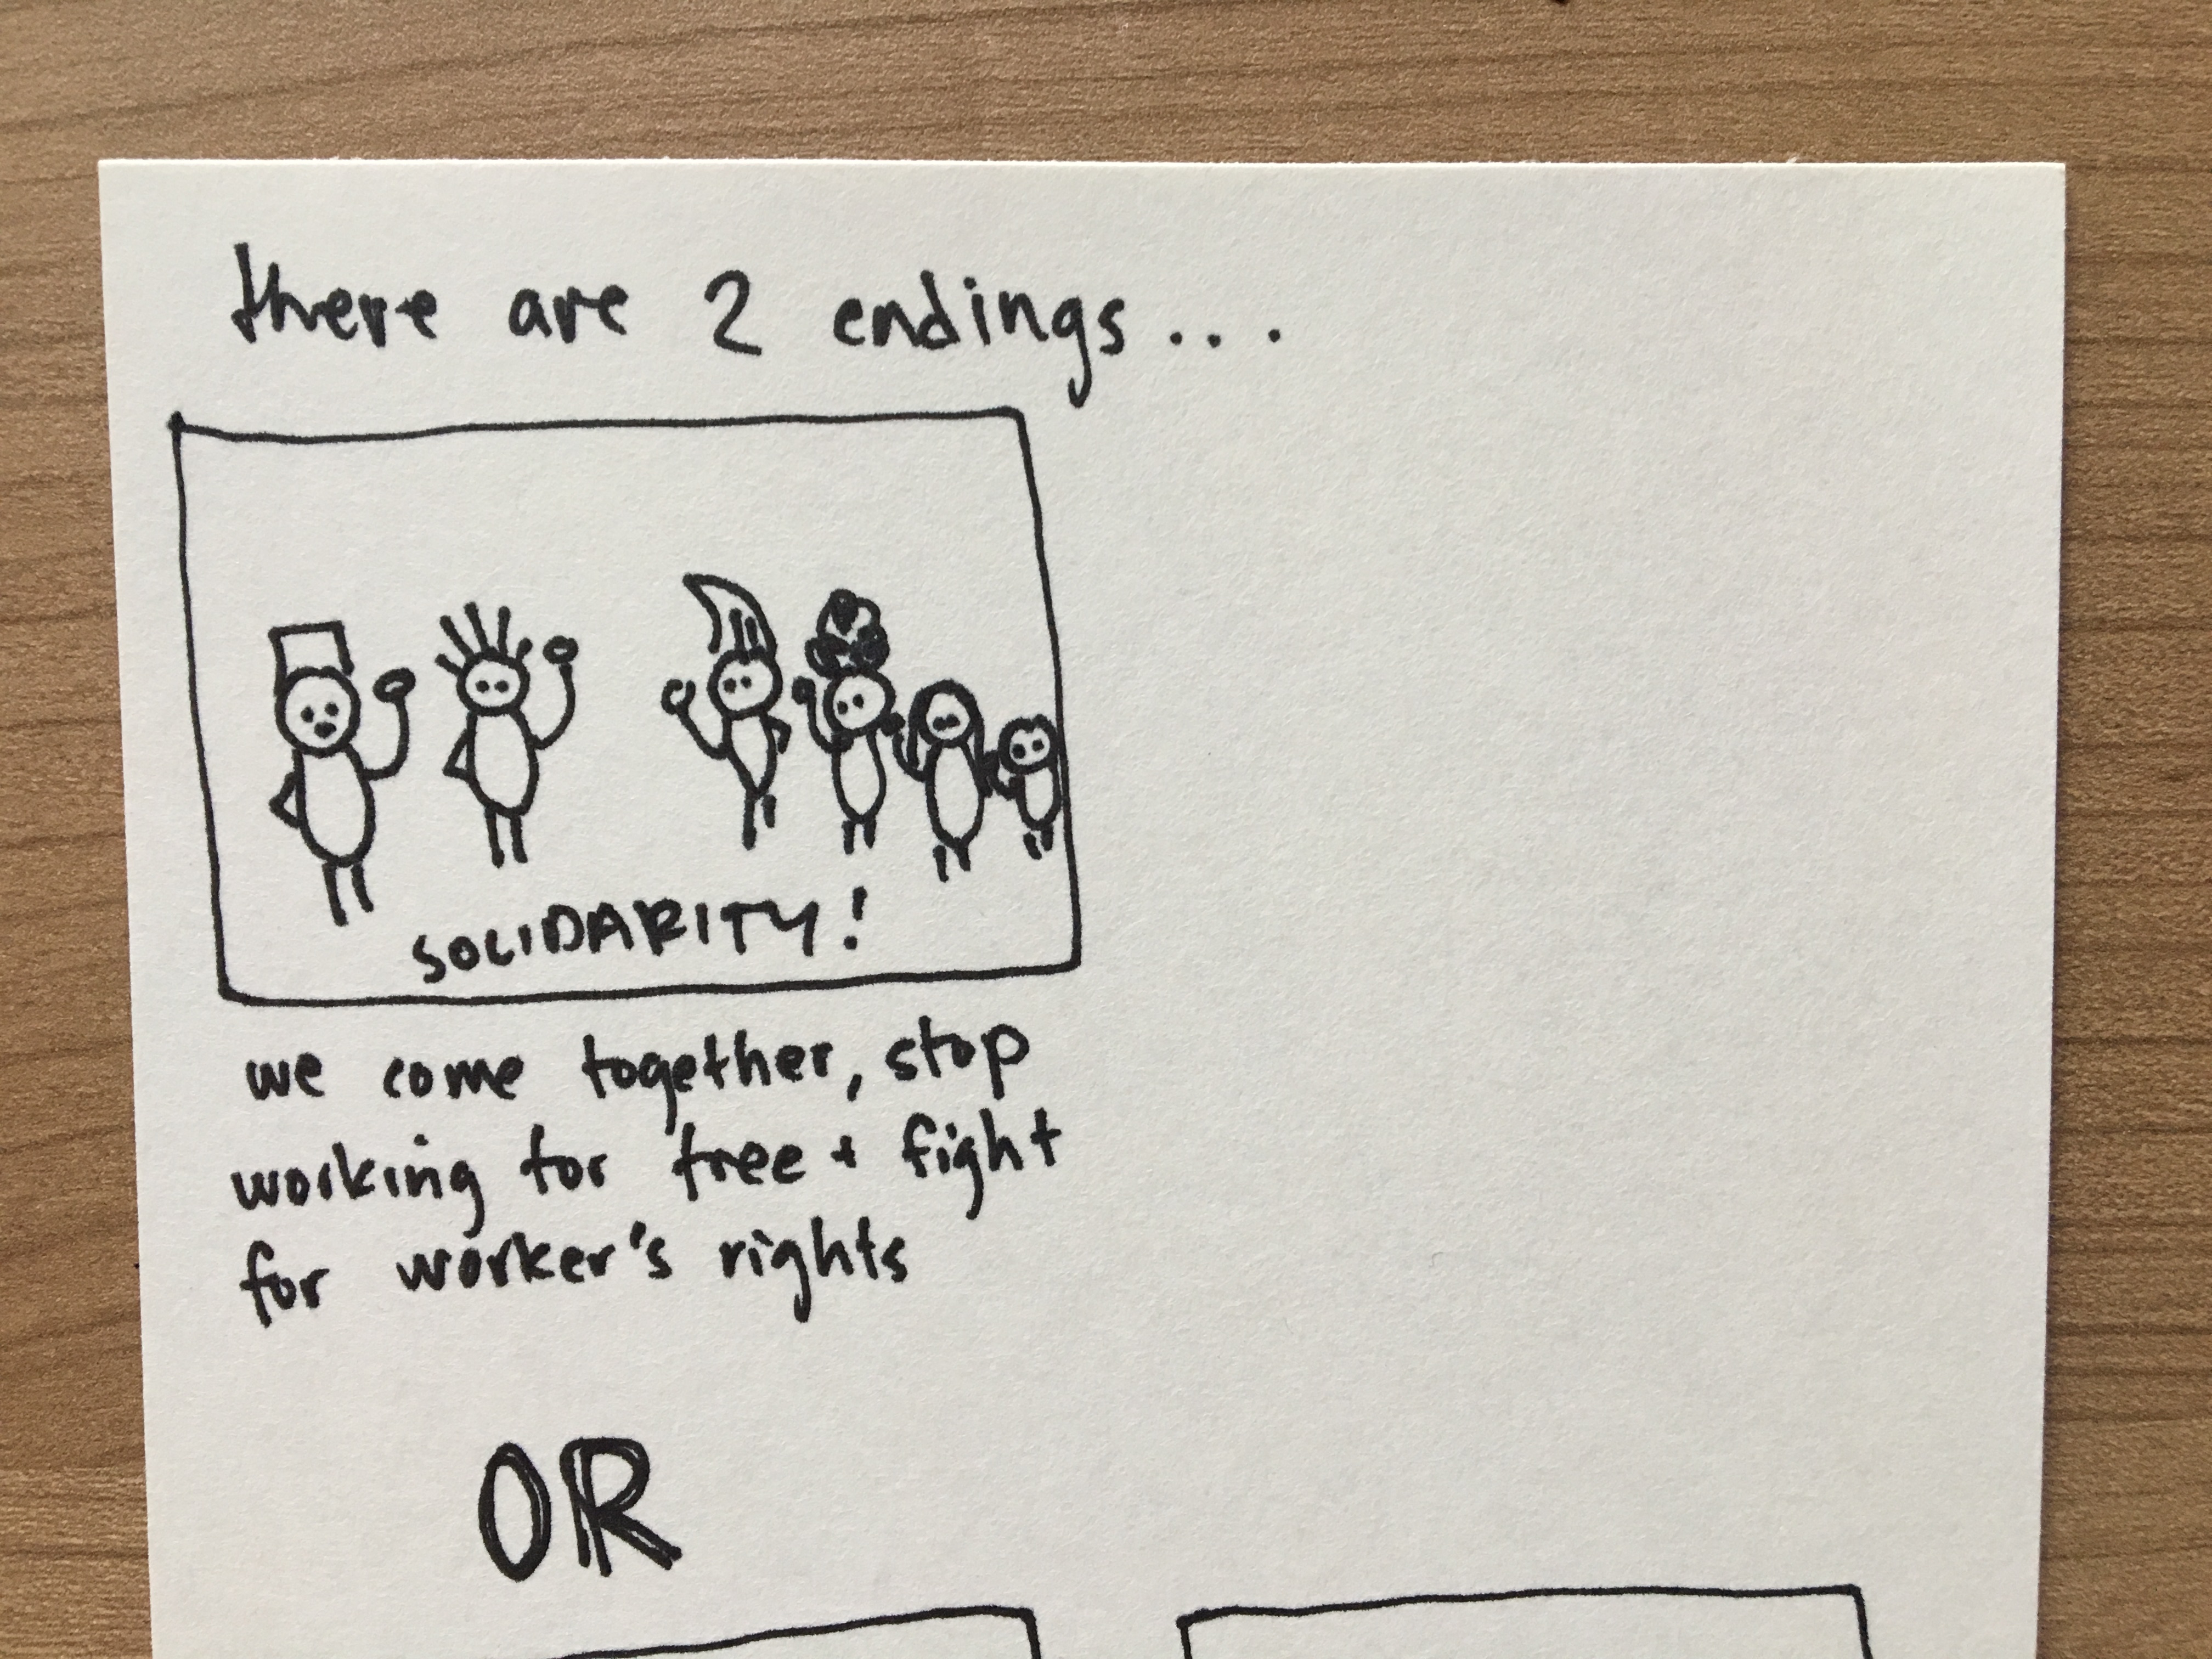 there are 2 endings...
SOLIDARITY!
we come together, stop
working for free + fight
for worker's rights
OR